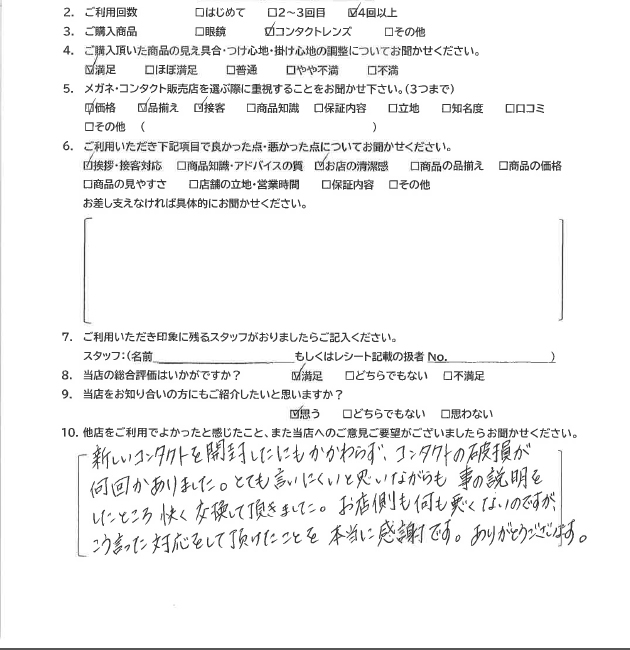 2. ご利用回数 □はじめて □2～3回目 ☑4回以上
3. ご購入商品 □眼鏡 ☑コンタクトレンズ □その他
4. ご購入頂いた商品の見え具合・つけ心地・掛け心地の調整についてお聞かせください。
☑満足 □ほぼ満足 □普通 □やや不満 □不満
5. メガネ・コンタクト販売店を選ぶ際に重視することをお聞かせ下さい。(3つまで)
☑価格 ☑品揃え ☑接客 □商品知識 □保証内容 □立地 □知名度 □口コミ
□その他 ( )
6. ご利用いただき下記項目で良かった点・悪かった点についてお聞かせください。
☑挨拶・接客対応 □商品知識・アドバイスの質 ☑お店の清潔感 □商品の品揃え □商品の価格
□商品の見やすさ □店舗の立地・営業時間 □保証内容 □その他
お差し支えなければ具体的にお聞かせください。
7. ご利用いただき印象に残るスタッフがおりましたらご記入ください。
スタッフ:(名前 もしくはレシート記載の扱者 No. )
8. 当店の総合評価はいかがですか? ☑満足 □どちらでもない □不満足
9. 当店をお知り合いの方にもご紹介したいと思いますか?
☑思う □どちらでもない □思わない
10. 他店をご利用でよかったと感じたこと、また当店へのご意見ご要望がございましたらお聞かせください。
新しいコンタクトを開封したにもかかわらず、コンタクトの破損が
何回かありました。とても言いにくいと思いながらも 事の説明を
したところ 快く交換して頂きました。お店側も何も悪くないのですが、
こう言った対応をして頂けたことを 本当に感謝です。ありがとうございます。